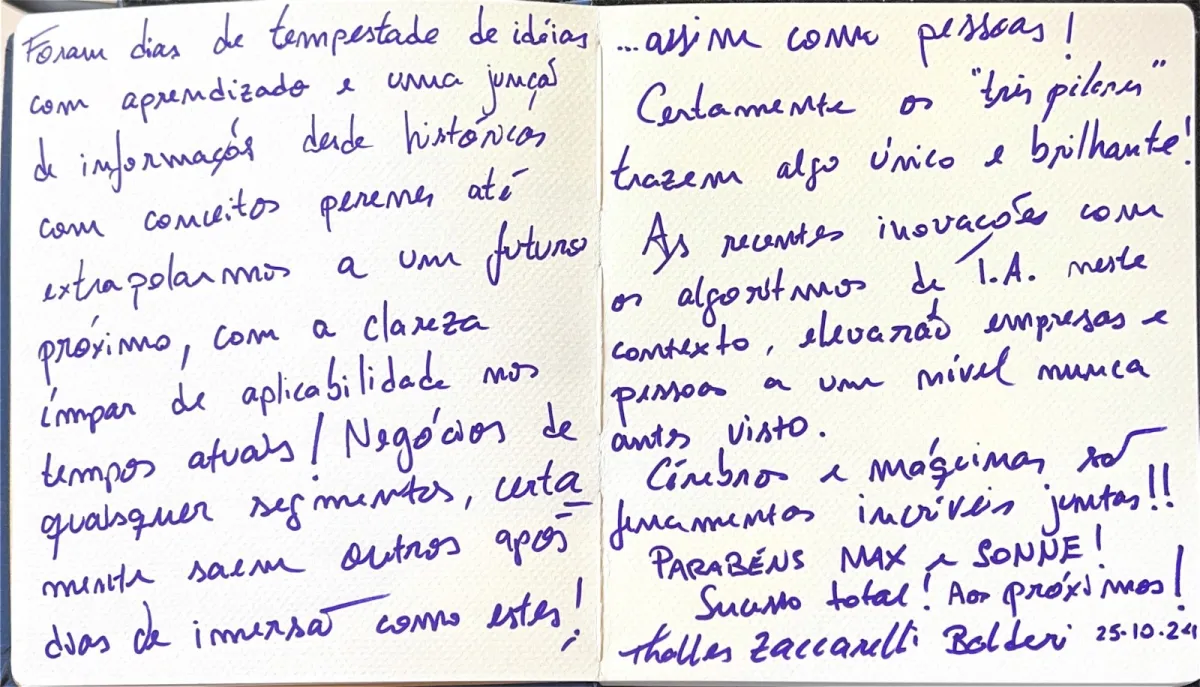 Foram dias de tempestade de idéias
com aprendizado e uma junção
de informação desde históricos
com conceitos perenes até
extrapolarmos a um futuro
próximo, com a clareza
ímpar de aplicabilidade nos
tempos atuais! Negócios de
quaisquer segmentos, certa
mente saem outros após
dias de imersão como estes!
...assim como pessoas!
Certamente os "três pilares"
trazem algo único e brilhante!
As recentes inovações com
os algoritmos de I.A. neste
contexto, elevarão empresas e
pessoas a um nível nunca
antes visto.
Cérebros e máquinas são
ferramentas incríveis juntas!!
PARABÉNS MAX e SONNE!
Sucesso total! Aos próximos!
Thalles Zaccarelli Balderi 25.10.24